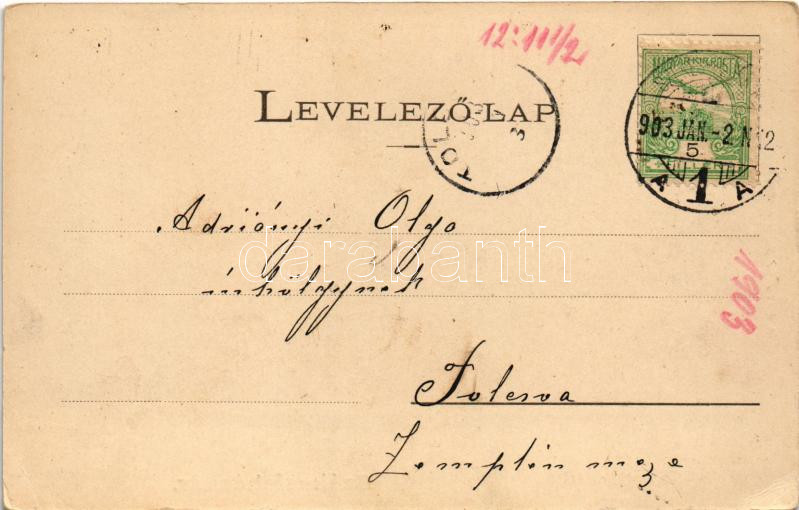 12:11 1/2
MAGYAR KIR. POSTA
LEVELEZŐ-LAP
TOL
903 JAN.-2. N12
5
A 1 A
Adriányi Olga
úrhölgynek
darabanth
1903
Tolcsva
Zemplén m.